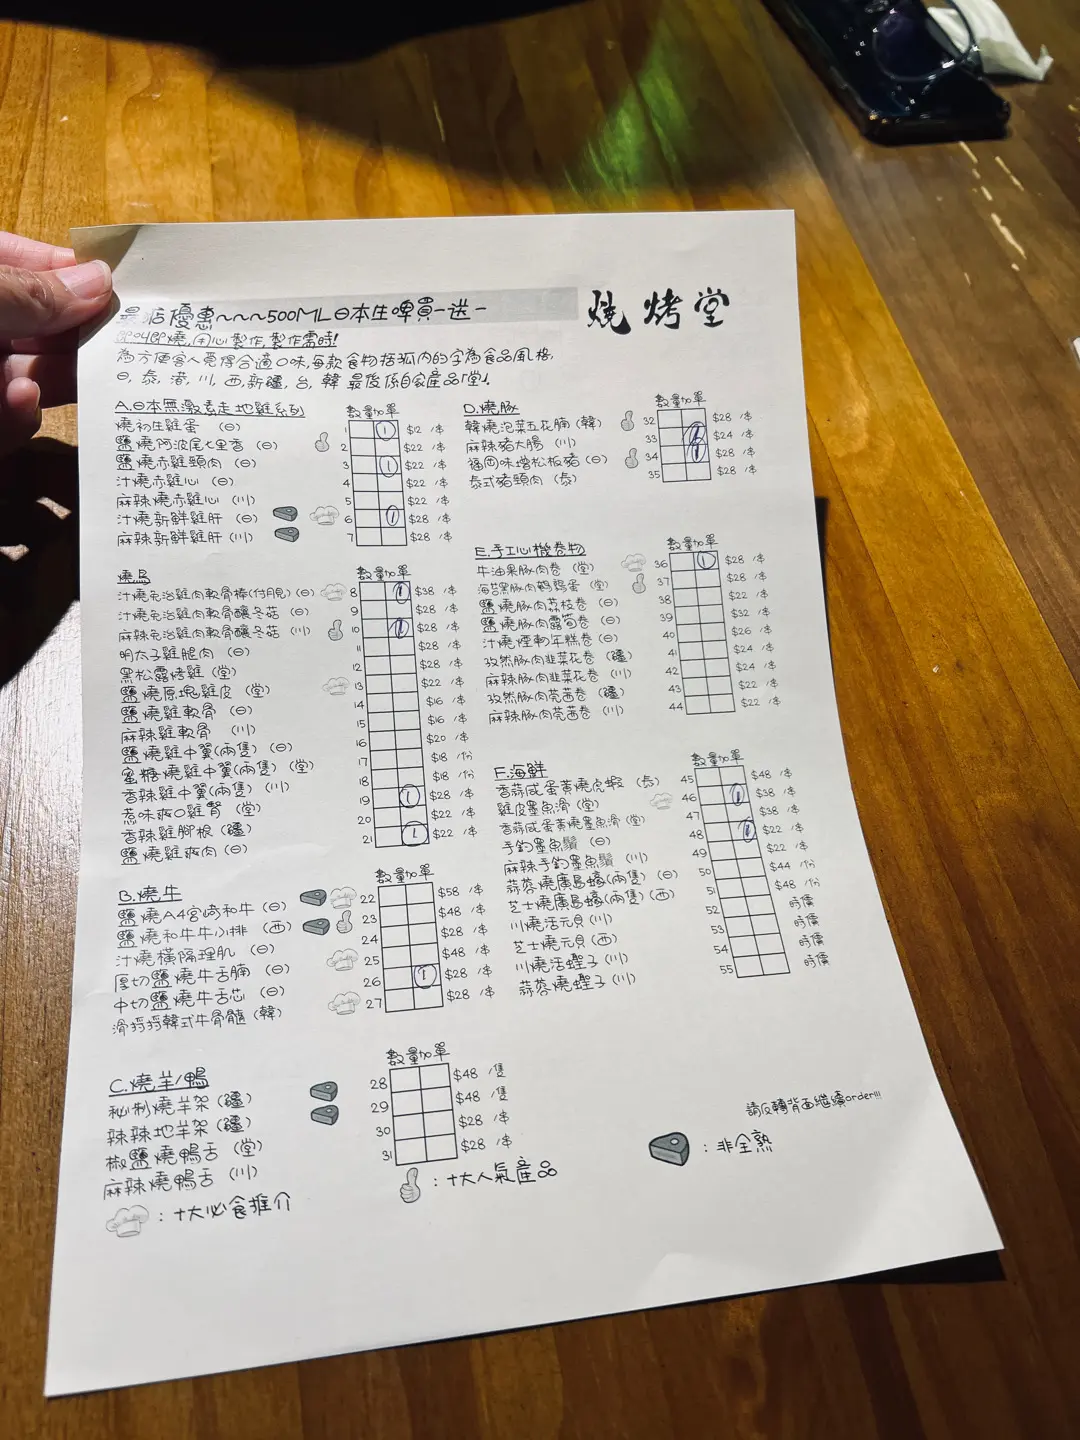 最店優惠~~~500ML日本生啤買一送一
燒烤堂
即叫即燒,用心製作,製作需時!
為方便客人覓得合適口味,每款食物括弧內的字為食品風格,
日, 泰, 港, 川, 西, 新疆, 台, 韓 最後係自家產品「堂」.
A.日本無激素走地雞系列
數量加單
燒初生雞蛋 (日) 1 1 $12 /串
鹽燒阿波尾七里香 (日) 2 $22 /串
鹽燒赤雞頸肉 (日) 3 1 $22 /串
汁燒赤雞心 (日) 4 $22 /串
麻辣燒赤雞心 (川) 5 $22 /串
汁燒新鮮雞肝 (日) 6 1 $28 /串
麻辣新鮮雞肝 (川) 7 $28 /串
燒鳥
數量加單
汁燒免治雞肉軟骨棒(付月見) (日) 8 1 $38 /串
汁燒免治雞肉軟骨釀冬菇 (日) 9 $28 /串
麻辣免治雞肉軟骨釀冬菇 (川) 10 1 $28 /串
明太子雞腿肉 (日) 11 $28 /串
黑松露烤雞 (堂) 12 $28 /串
鹽燒原塊雞皮 (堂) 13 $22 /串
鹽燒雞軟骨 (日) 14 $16 /串
麻辣雞軟骨 (川) 15 $16 /串
鹽燒雞中翼(兩隻) (日) 16 $20 /串
蜜糖燒雞中翼(兩隻) (堂) 17 $18 /份
香辣雞中翼(兩隻) (川) 18 $18 /份
惹味爽口雞腎 (堂) 19 1 $28 /串
香辣雞腳根 (疆) 20 $22 /串
鹽燒雞爽肉 (日) 21 1 $22 /串
B.燒牛
數量加單
鹽燒A4宮崎和牛 (日) 22 $58 /串
鹽燒和牛牛小排 (西) 23 $48 /串
汁燒橫隔理肌 (日) 24 $28 /串
厚切鹽燒牛舌腩 (日) 25 $48 /串
中切鹽燒牛舌芯 (日) 26 1 $28 /串
滑捋捋韓式牛骨髓 (韓) 27 $28 /串
C.燒羊/鴨
數量加單
秘制燒羊架 (疆) 28 $48 /隻
辣辣地羊架 (疆) 29 $48 /隻
椒鹽燒鴨舌 (堂) 30 $28 /串
麻辣燒鴨舌 (川) 31 $28 /串
D.燒豚
數量加單
韓燒泡菜五花腩 (韓) 32 $28 /串
麻辣豬大腸 (川) 33 1 $24 /串
福岡味增松板豬 (日) 34 1 $28 /串
泰式豬頸肉 (泰) 35 $28 /串
E.手工心機卷物
數量加單
牛油果豚肉卷 (堂) 36 1 $28 /串
海苔黑豚肉鵪鶉蛋 (堂) 37 $28 /串
鹽燒豚肉荔枝卷 (日) 38 $22 /串
鹽燒豚肉露筍卷 (日) 39 $32 /串
汁燒煙鴨年糕卷 (日) 40 $26 /串
孜然豚肉韭菜花卷 (疆) 41 $24 /串
麻辣豚肉韭菜花卷 (川) 42 $24 /串
孜然豚肉芫茜卷 (疆) 43 $22 /串
麻辣豚肉芫茜卷 (川) 44 $22 /串
F.海鮮
數量加單
香蒜咸蛋黃燒虎蝦 (泰) 45 $48 /串
雞皮墨魚滑 (堂) 46 1 $38 /串
香蒜咸蛋黃燒墨魚滑 (堂) 47 $38 /串
手釣墨魚鬚 (日) 48 1 $22 /串
麻辣手釣墨魚鬚 (川) 49 $22 /串
蒜蓉燒廣島蠔(兩隻) (日) 50 $44 /份
芝士燒廣島蠔(兩隻) (西) 51 $48 /份
川燒活元貝 (川) 52 時價
芝士燒元貝 (西) 53 時價
川燒活蟶子 (川) 54 時價
蒜蓉燒蟶子 (川) 55 時價
請反轉背面繼續order!!!
: 十大必食推介
: 十大人氣產品
: 非全熟